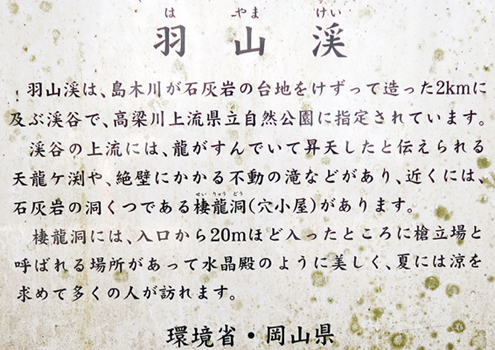 は やま けい
羽山渓
羽山渓は、島木川が石灰岩の台地をけずって造った2kmに
及ぶ渓谷で、高梁川上流県立自然公園に指定されています。
渓谷の上流には、龍がすんでいて昇天したと伝えられる
天龍ケ渕や、絶壁にかかる不動の滝などがあり、近くには、
せい りゅう どう
石灰岩の洞くつである棲龍洞(穴小屋)があります。
棲龍洞には、入口から20mほど入ったところに槍立場と
呼ばれる場所があって水晶殿のように美しく、夏には涼を
求めて多くの人が訪れます。
環境省・岡山県